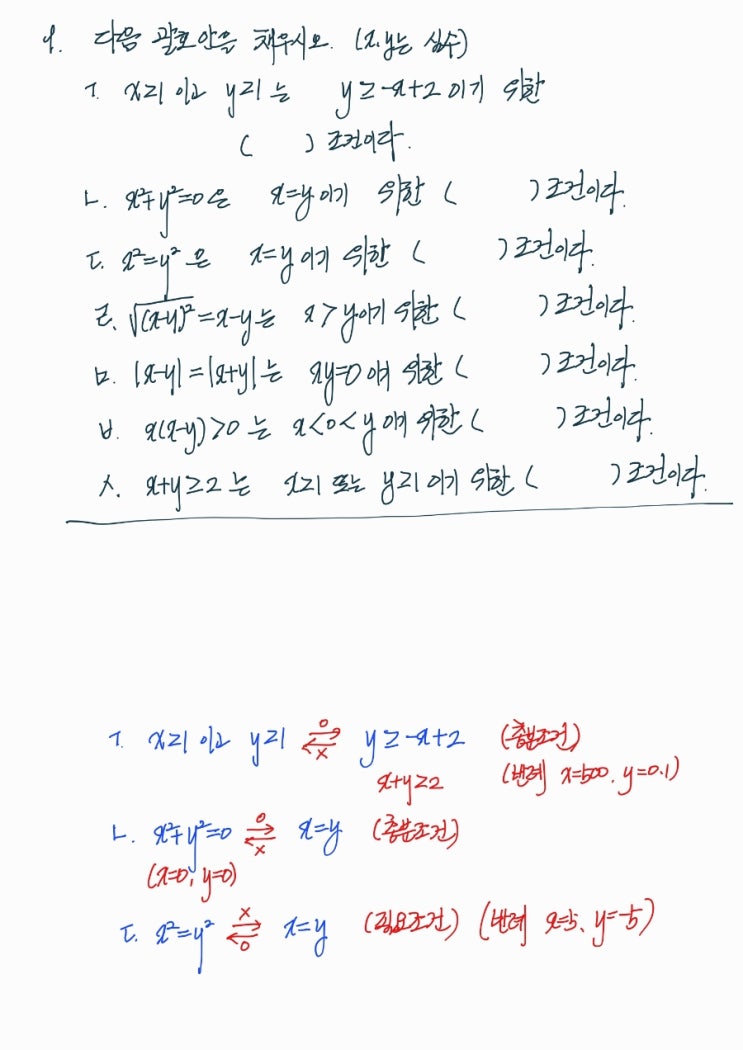 1. 다음 괄호안을 채우시오. (x,y는 실수)
ㄱ. x≥1 이고 y≥1 는 y≥-x+2 이기 위한
( ) 조건이다.
ㄴ. x²+y²=0은 x=y이기 위한 ( ) 조건이다.
ㄷ. x²=y²은 x=y이기 위한 ( ) 조건이다.
ㄹ. √(x-y)²=x-y는 x>y이기 위한 ( ) 조건이다.
ㅁ. |x-y|=|x+y|는 xy=0이기 위한 ( ) 조건이다.
ㅂ. x(x-y)>0는 x<0<y이기 위한 ( ) 조건이다.
ㅅ. x+y≥2는 x≥1 또는 y≥1이기 위한 ( ) 조건이다.
ㄱ. x≥1 이고 y≥1 o → ← x y≥-x+2 (충분조건)
x+y≥2 (반례 x=500, y=0.1)
ㄴ. x²+y²=0 o → ← x x=y (충분조건)
(x=0, y=0)
ㄷ. x²=y² x → ← o x=y (필요조건) (반례 x=5, y=-5)